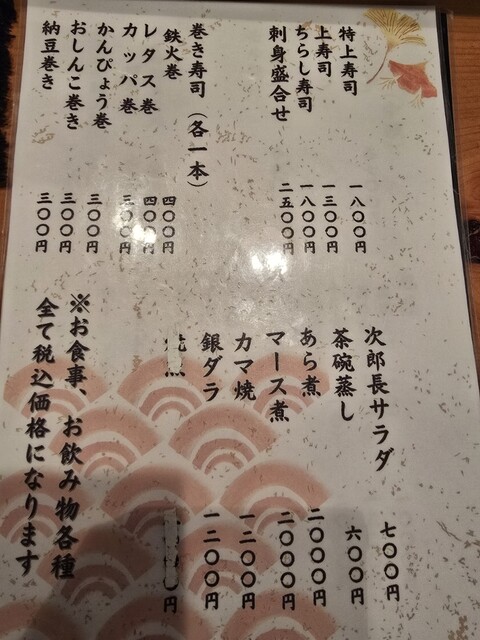 特上寿司 一八〇〇円
上寿司 一三〇〇円
ちらし寿司 一八〇〇円
刺身盛合せ 二五〇〇円
巻き寿司（各一本）
鉄火巻 四〇〇円
レタス巻 四〇〇円
カッパ巻 三〇〇円
かんぴょう巻 三〇〇円
おしんこ巻き 三〇〇円
納豆巻き 三〇〇円
次郎長サラダ 七〇〇円
茶碗蒸し 六〇〇円
あら煮 二〇〇〇円
マース煮 二〇〇〇円
カマ焼 一二〇〇円
銀ダラ 一二〇〇円
円
※お食事、お飲み物各種
全て税込価格になります